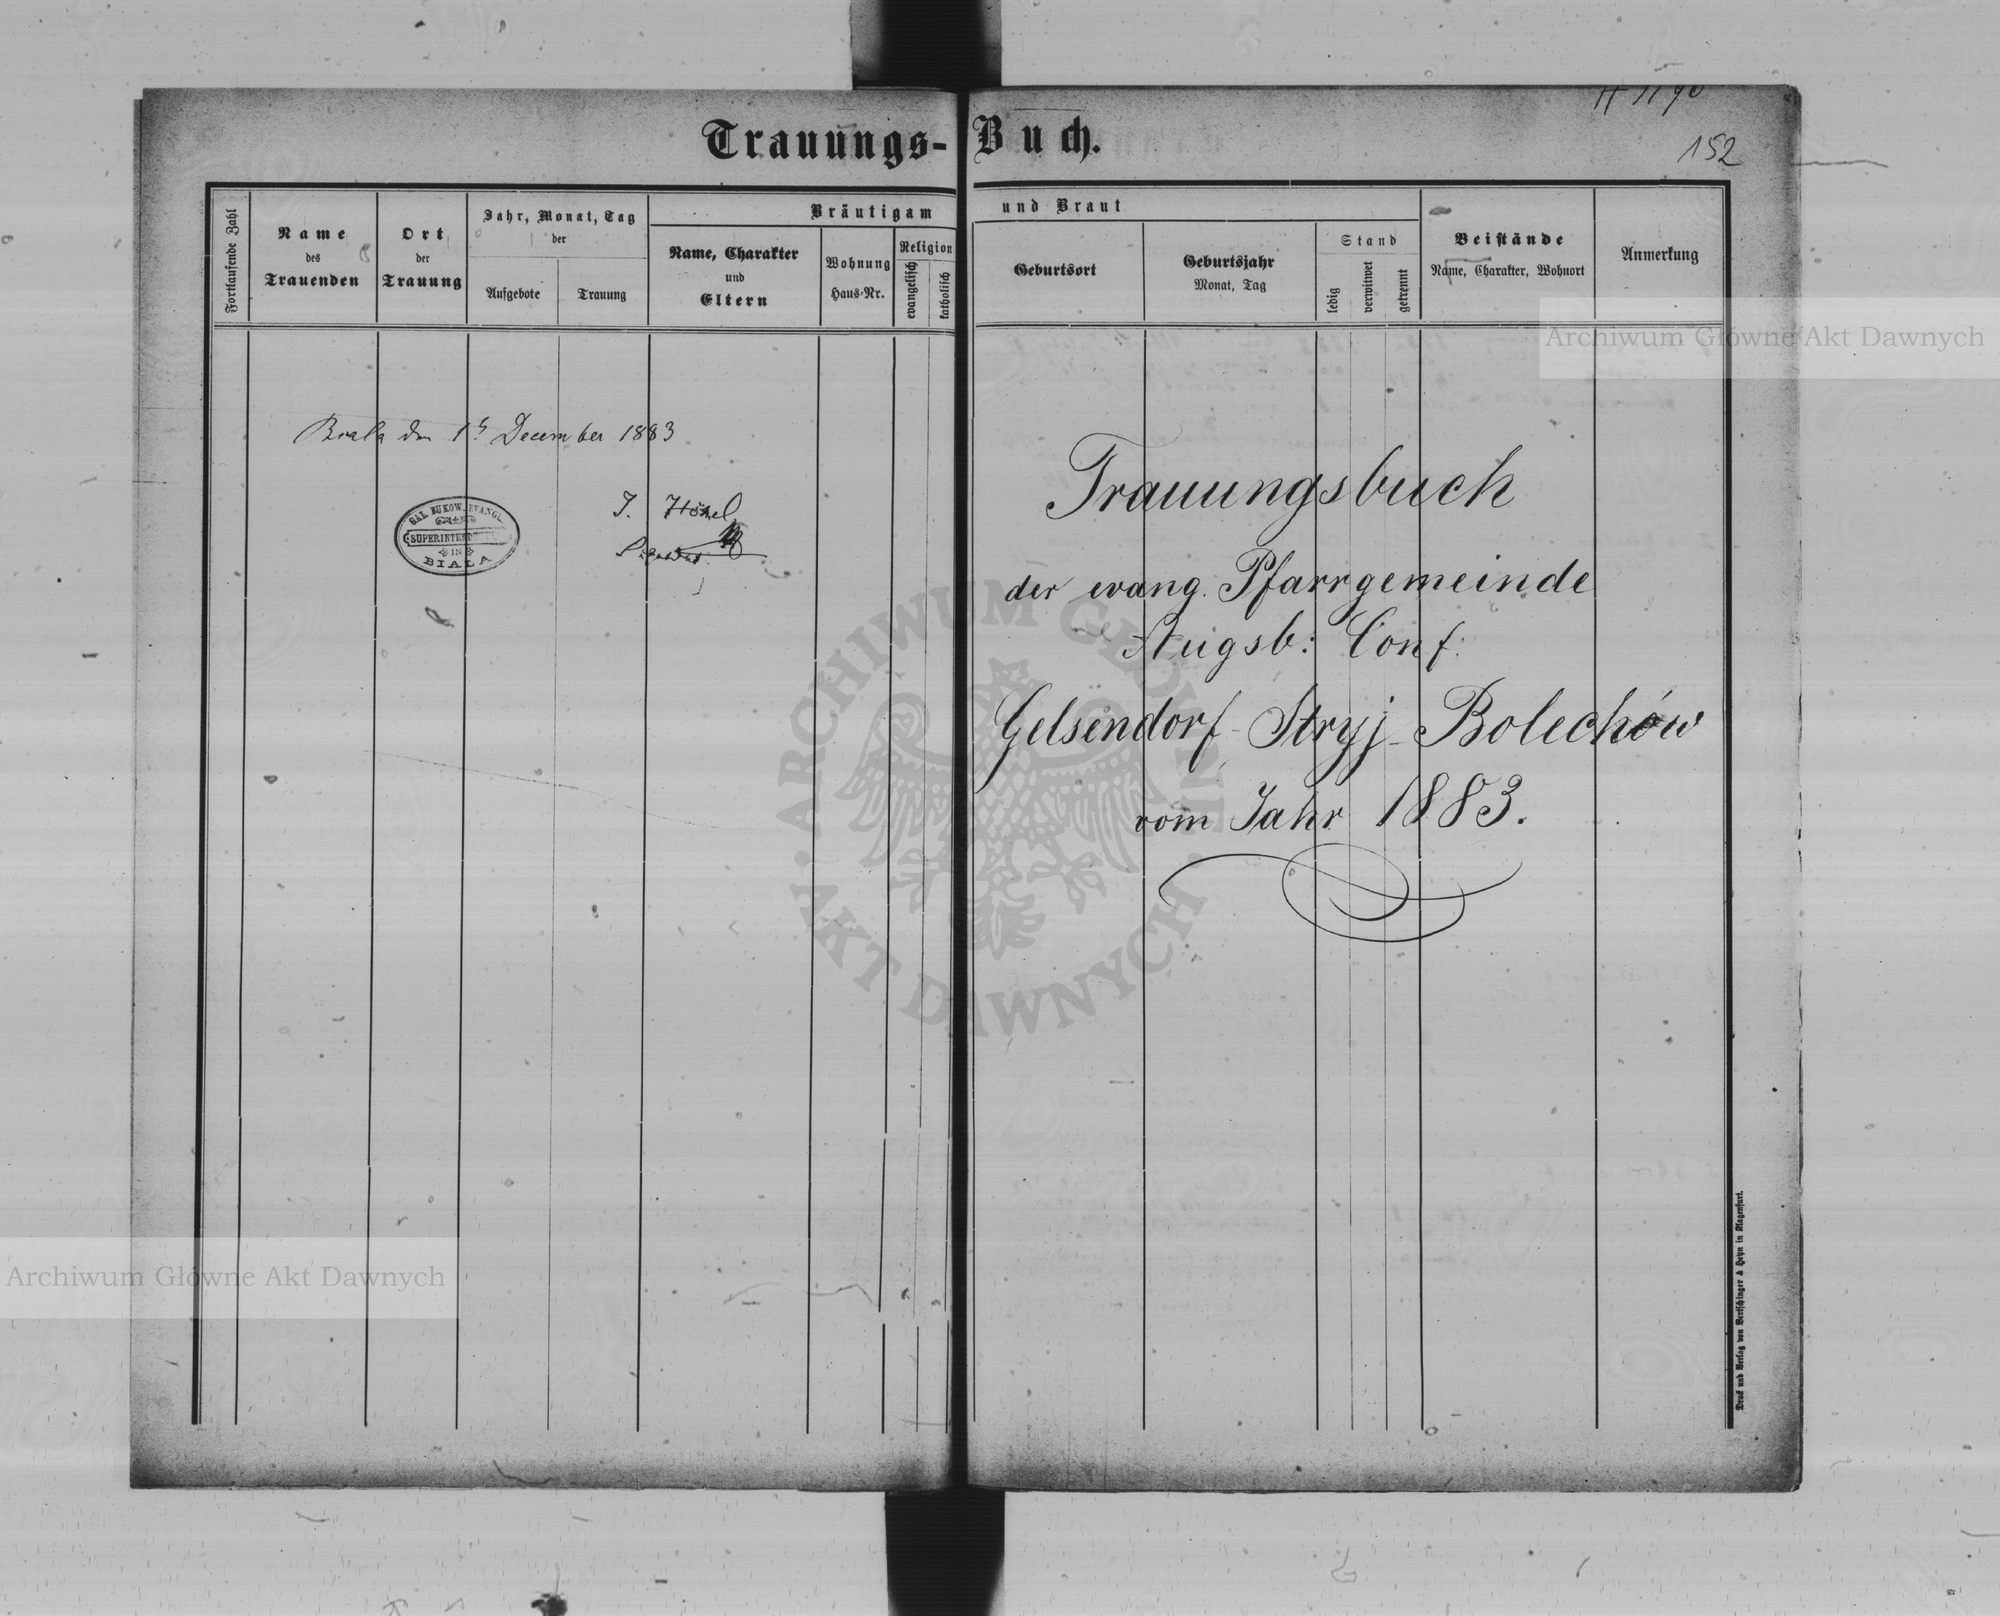 Trauungs-Buch.
152
Fortlaufende Zahl
Name
des
Trauenden
Ort
der
Trauung
Jahr, Monat, Tag
der
Aufgebote
Trauung
Bräutigam und Braut
Name, Charakter
und
Eltern
Wohnung
Haus-Nr.
Religion
evangelisch
katholisch
Geburtsort
Geburtsjahr
Monat, Tag
Stand
ledig
verwinwet
getrennt
Beistände
Name, Charakter, Wohnort
Anmerkung
Biala den 1t December 1883
J. Hönel
GAL. BUKOW. EVANGL.
SUPERINTEND
IN
BIALA
Trauungsbuch
der evang. Pfarrgemeinde
Augsb: Conf:
Gelsendorf-Stryj-Bolechów
vom Jahr 1883.
Druck und Verlag von Bertschinger & Heyn in Klagenfurt.
Archiwum Główne Akt Dawnych
Archiwum Główne Akt Dawnych
ARCHIWUM GŁÓWNE AKT DAWNYCH